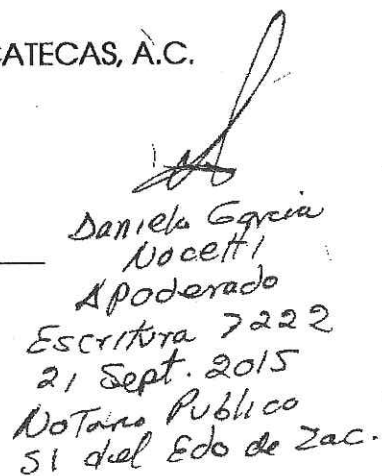 CATECAS, A.C.
Daniela Garcia
Nocetti
Apoderado
Escritura 7222
21 Sept. 2015
Notario Publico
51 del Edo de Zac.